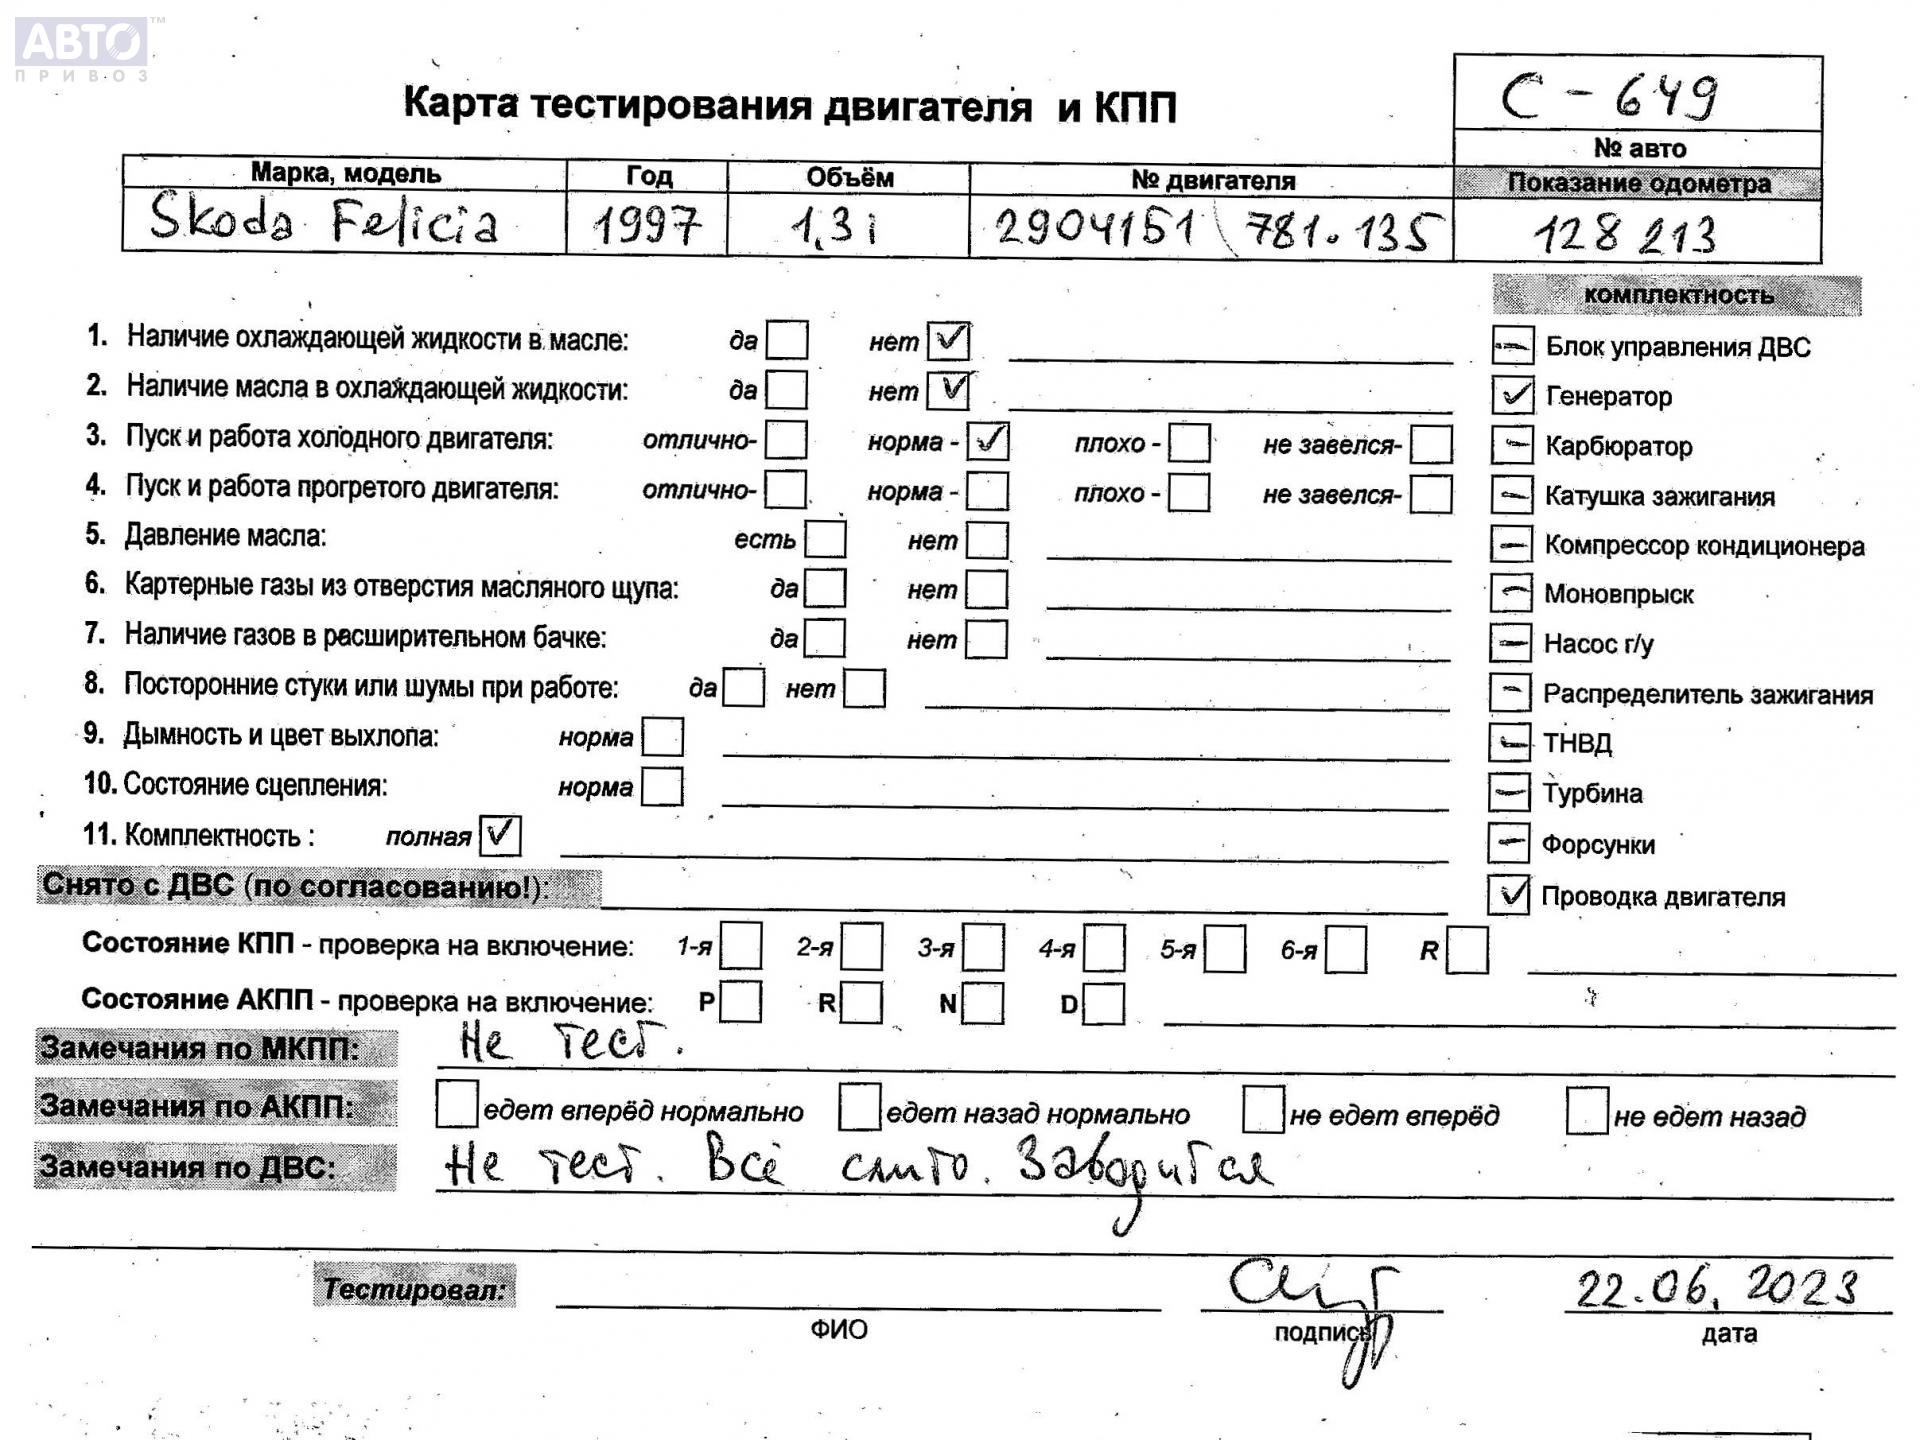 АВТО™
ПРИВОЗ
С - 649
Карта тестирования двигателя и КПП
№ авто
Марка, модель Год Объём № двигателя Показание одометра
Skoda Felicia 1997 1,3i 2904151 \ 781.135 128 213
комплектность
1. Наличие охлаждающей жидкости в масле: да нет ✓ — Блок управления ДВС
2. Наличие масла в охлаждающей жидкости: да нет ✓ ✓ Генератор
3. Пуск и работа холодного двигателя: отлично- норма - ✓ плохо - не завелся- — Карбюратор
4. Пуск и работа прогретого двигателя: отлично- норма - плохо - не завелся- — Катушка зажигания
5. Давление масла: есть нет — Компрессор кондиционера
6. Картерные газы из отверстия масляного щупа: да нет — Моновпрыск
7. Наличие газов в расширительном бачке: да нет — Насос г/у
8. Посторонние стуки или шумы при работе: да нет — Распределитель зажигания
9. Дымность и цвет выхлопа: норма — ТНВД
10. Состояние сцепления: норма — Турбина
11. Комплектность : полная ✓ — Форсунки
Снято с ДВС (по согласованию!): ✓ Проводка двигателя
Состояние КПП - проверка на включение: 1-я 2-я 3-я 4-я 5-я 6-я R
Состояние АКПП - проверка на включение: P R N D
Замечания по МКПП: Не тест.
Замечания по АКПП: едет вперёд нормально едет назад нормально не едет вперёд не едет назад
Замечания по ДВС: Не тест. Всё слито. Заводится
Тестировал: 22.06.2023
ФИО подпись дата